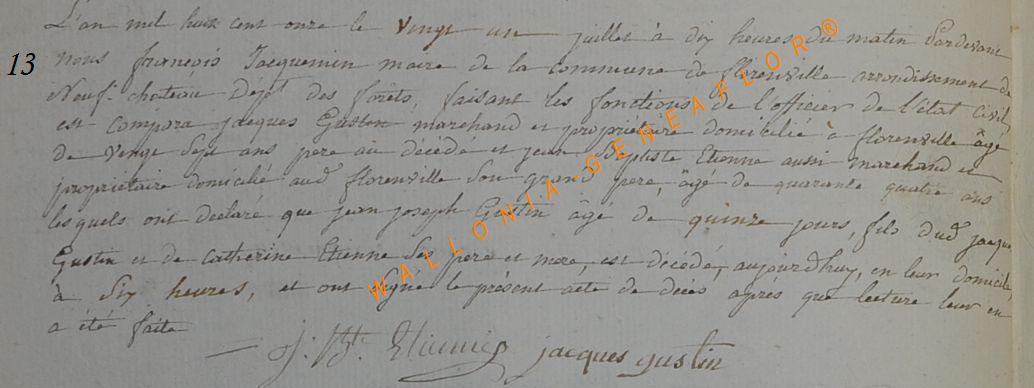 13
L'an mil huit cent onze le vingt un juillet à dix heures du matin Pardevant
nous françois Jacquemin maire de la commune de florenville arrondissement de
Neuf-chateau Dépt des forêts, faisant les fonctions de l'officier de l'état Civil,
est comparu jacques Gustin marchand et propriétaire domicilié à florenville âgé
de vingt sept ans pere au décédé et jean Baptiste Etienne aussi marchand et
propriétaire domicilié aud florenville son grand pere âgé de quarante quatre ans
lesquels ont declaré que jean joseph Gustin âgé de quinze jours, fils dud jacques
Gustin et de Catherine Etienne ses pere et mere, est décédé, aujourdhuy, en leur domicile,
à six heures, et ont signé le présent acte de décès après que lecture leur en
a été faite
J: Bte Etienne jacques gustin
WALLONIA GENEAFLOR®